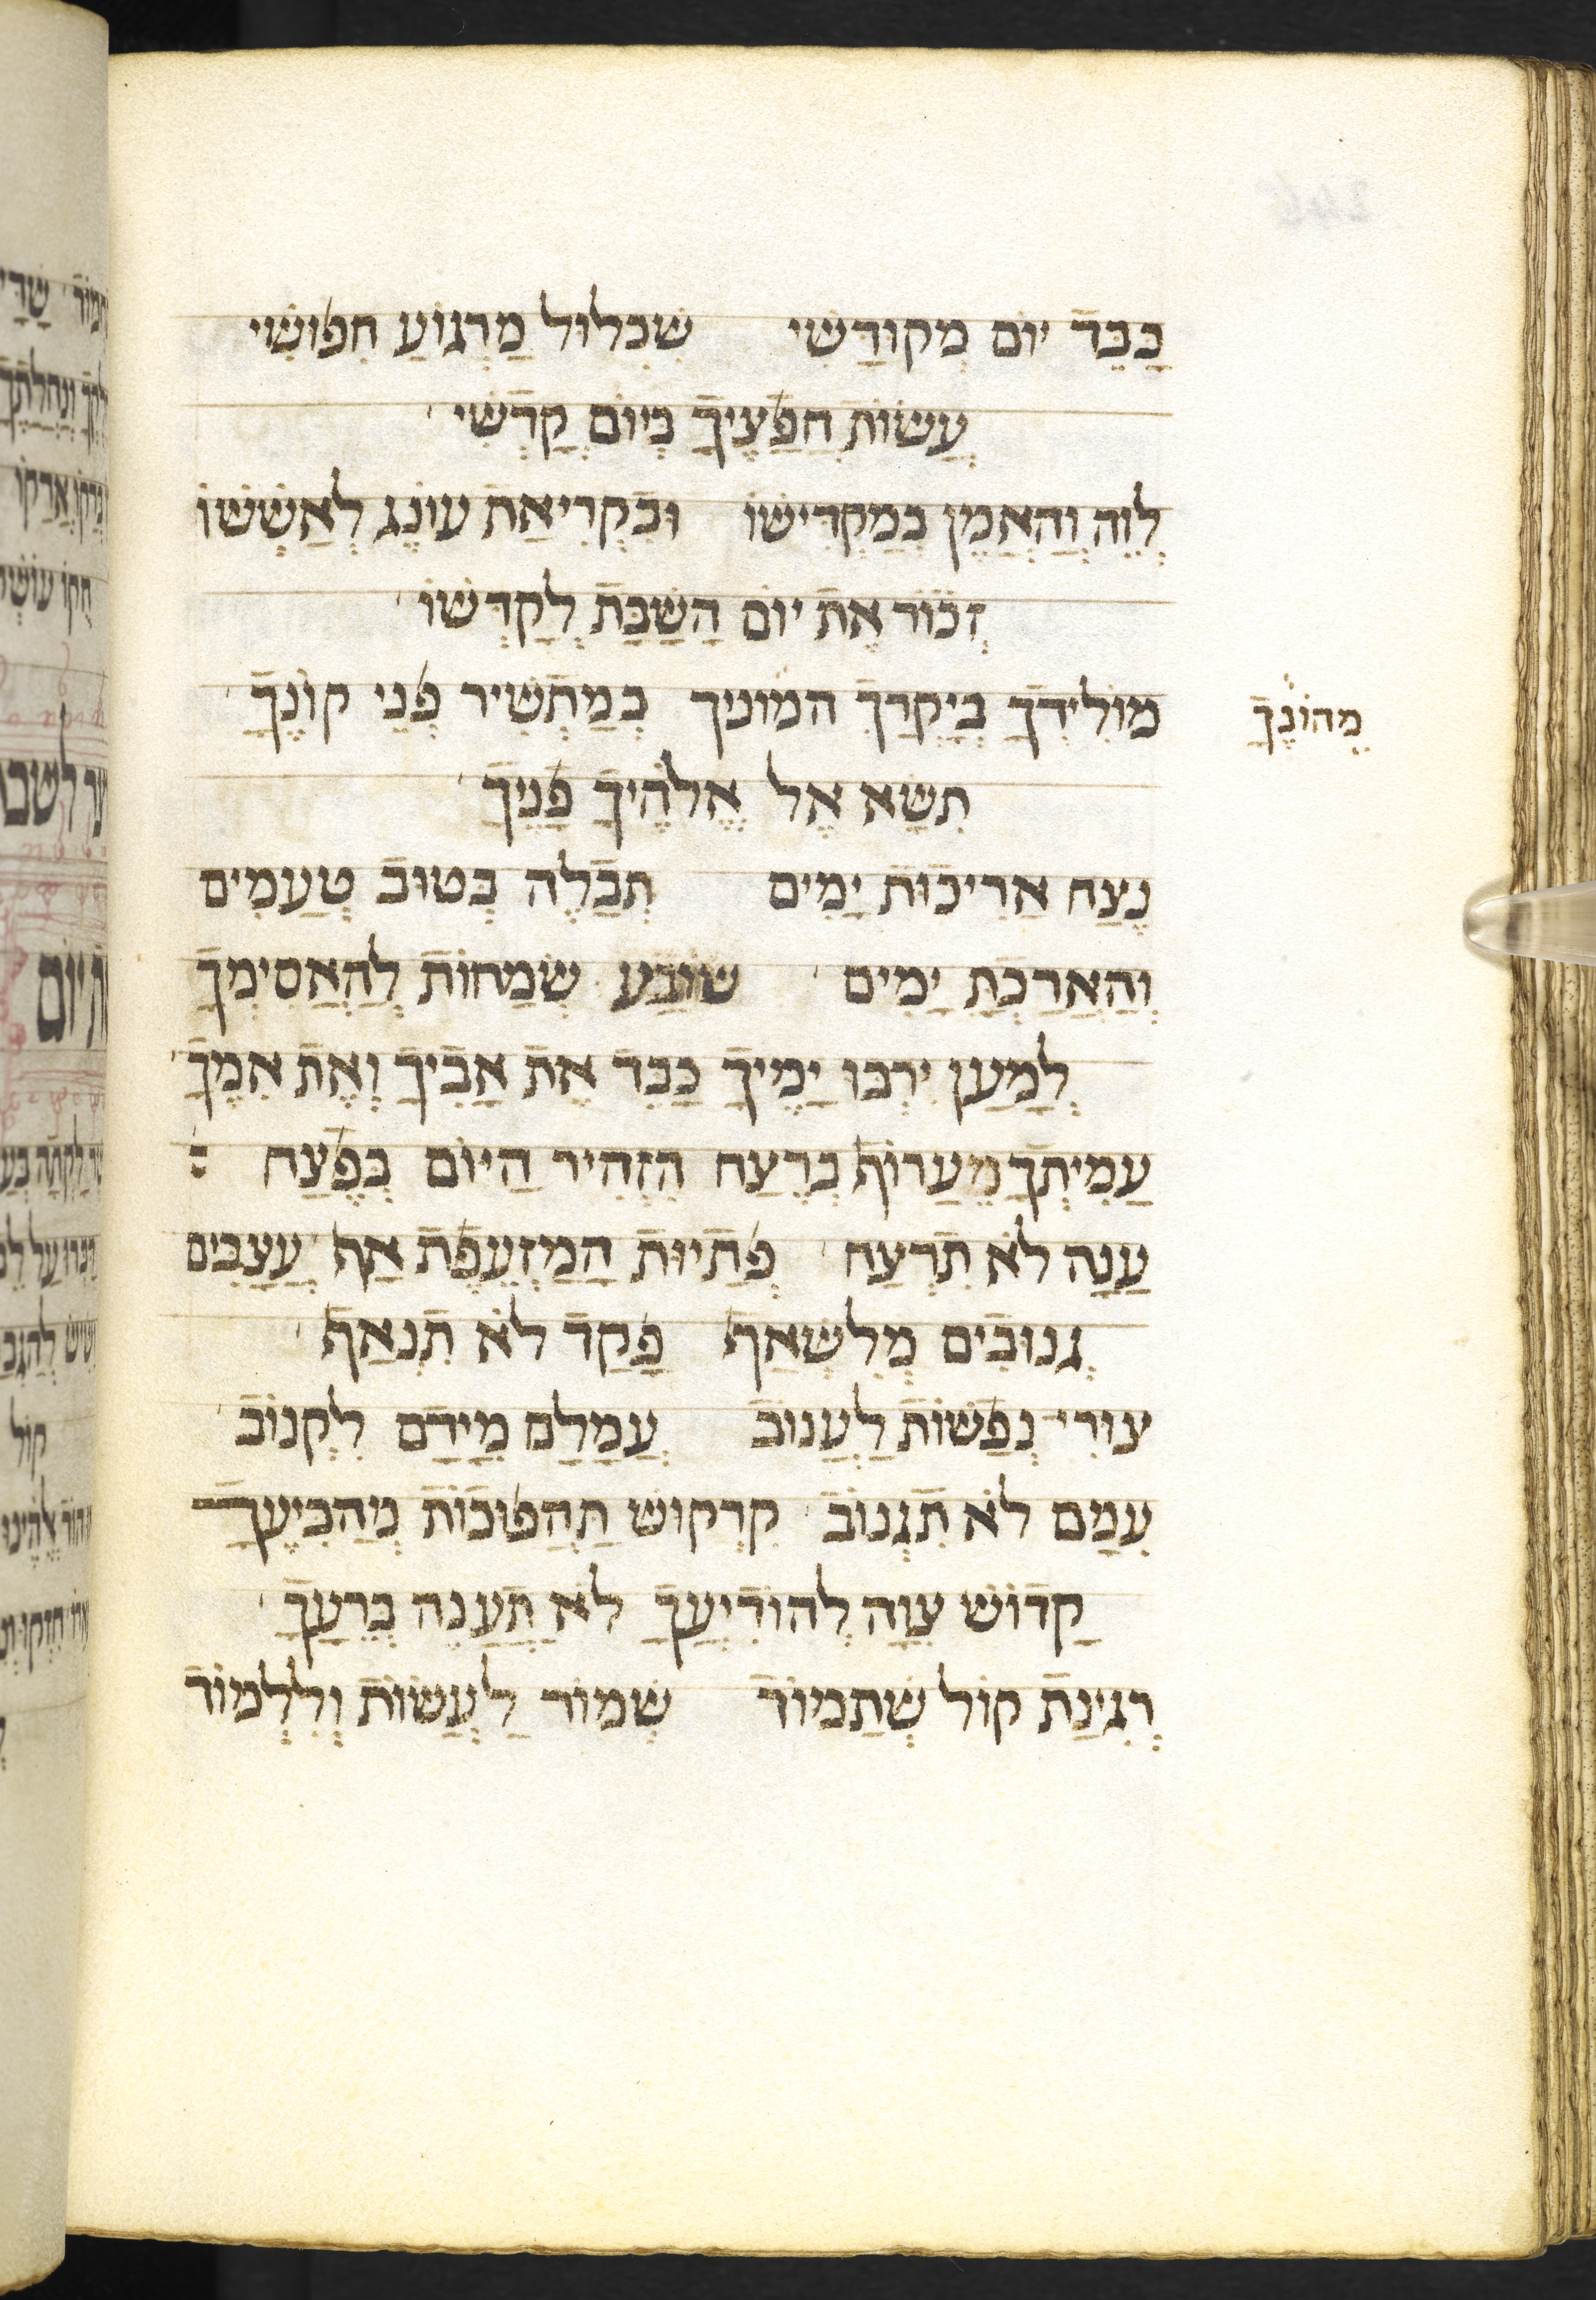 כַבֵד יוֹם מְקוּדָשִי שִכְלוּל מַרְגוֹעַ חִפוּשִי
עֲשוֹת חֲפָצֶיךָ בְיוֹם קָדְשִי
לְוֵה וְהַאֲמֵן בְמַקְדִישוֹ וּבִקְרִיאַת עוֹנֶג לְאַשְשוֹ
זְכוֹר אֶת יוֹם הַשַבָת לְקַדְשוֹ
מוֹלִידְךָ בְיָקְרְךָ המוניך כְמַתְשִיר פְנֵי קוֹנֶךָ
מֵהוֹנֶךָ
תִשָא אֶל אֱלֹהֶיךָ פָנֶיךָ
נֶצַח אֲרִיכוּת יָמִים תְבַלֶה בְטוּב טְעָמִים
וְהַאֲרָכַת יָמִים שׂוֹבַע שְמָחוֹת לְהַאֲסִימְךָ
לְמַעַן יִרְבוּ יָמֶיךָ כַבֵד אֶת אָבִיךָ וְאֶת אִמֶךָ
עֲמִיתְךָ מֵעֲרוֹף בְרֶצַח הִזְהִיר הַיוֹם בְפֶצַח
עָנָה לֹא תִרְצַח פְתַיוּת הַמַזְעֶפֶת אַף עֲצָבִים
גְנוּבִים מִלִשְאַף פָקַד לֹא תִנְאַף
צוּדִי נְפָשוֹת לַעֲנוֹב עֲמָלָם מִיָדָם לִקְנוֹב
עִמָם לֹא תִגְנוֹב קִרְקוּש תַהְפוּכוֹת מְהַבִיעֶךָ
קָדוֹש צִוָה לְהוֹדִיעֶךָ לֹא תַעֲנֶה בְרֵעֶךָ
רְגִינַת קוֹל שְתָמוֹר שְמוֹר לַעֲשוֹת וְלִלְמוֹד